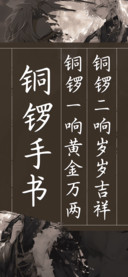 铜锣二响岁岁吉祥
铜锣一响黄金万两
铜锣手书